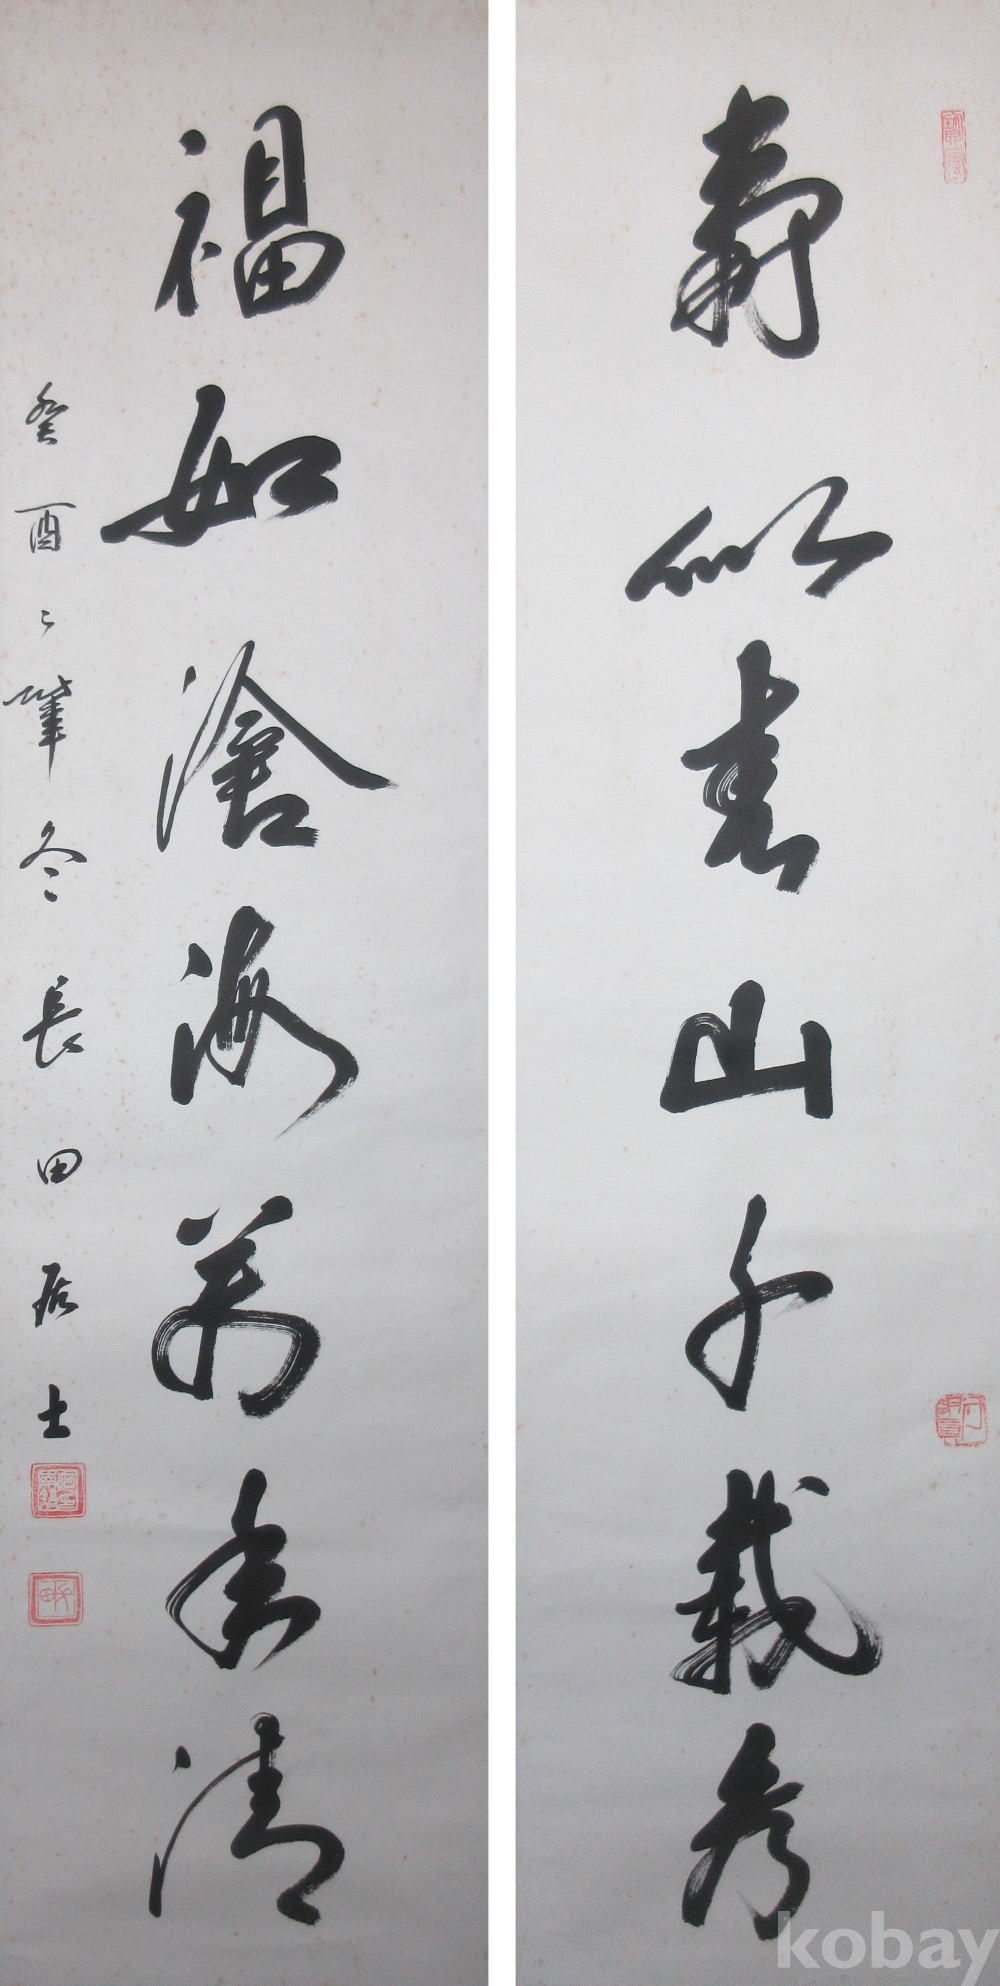 壽似春山千載秀
福如滄海萬秊清
癸酉之肇冬長田居士
kobay